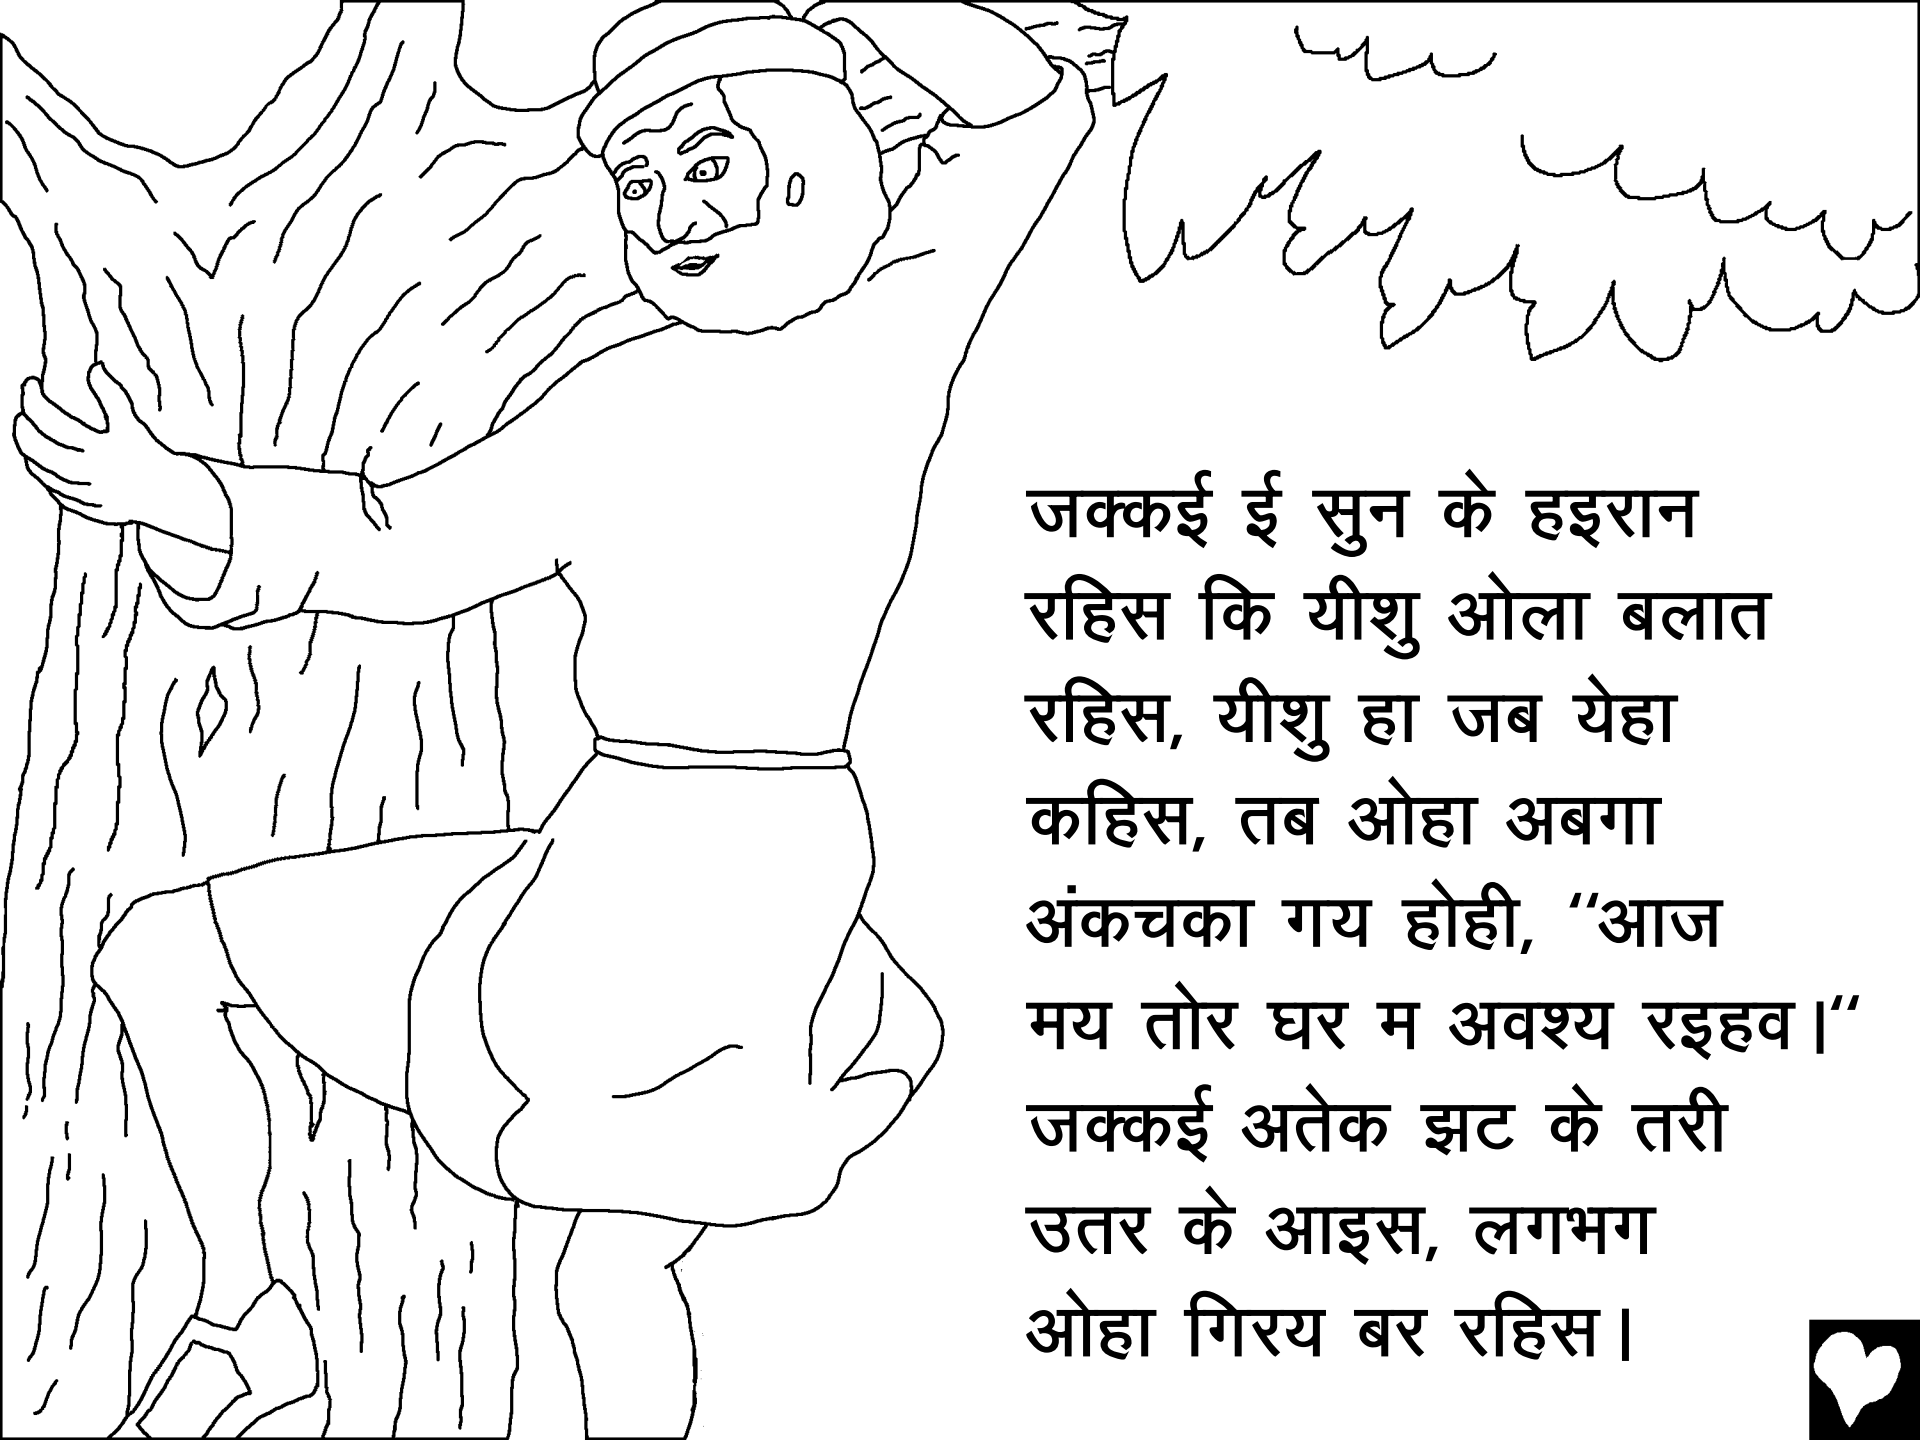 जक्कई ई सुन के हइरान
रहिस कि यीशु ओला बलात
रहिस, यीशु हा जब येहा
कहिस, तब ओहा अबगा
अंकचका गय होही, “आज
मय तोर घर म अवश्य रइहव।“
जक्कई अतेक झट के तरी
उतर के आइस, लगभग
ओहा गिरय बर रहिस।